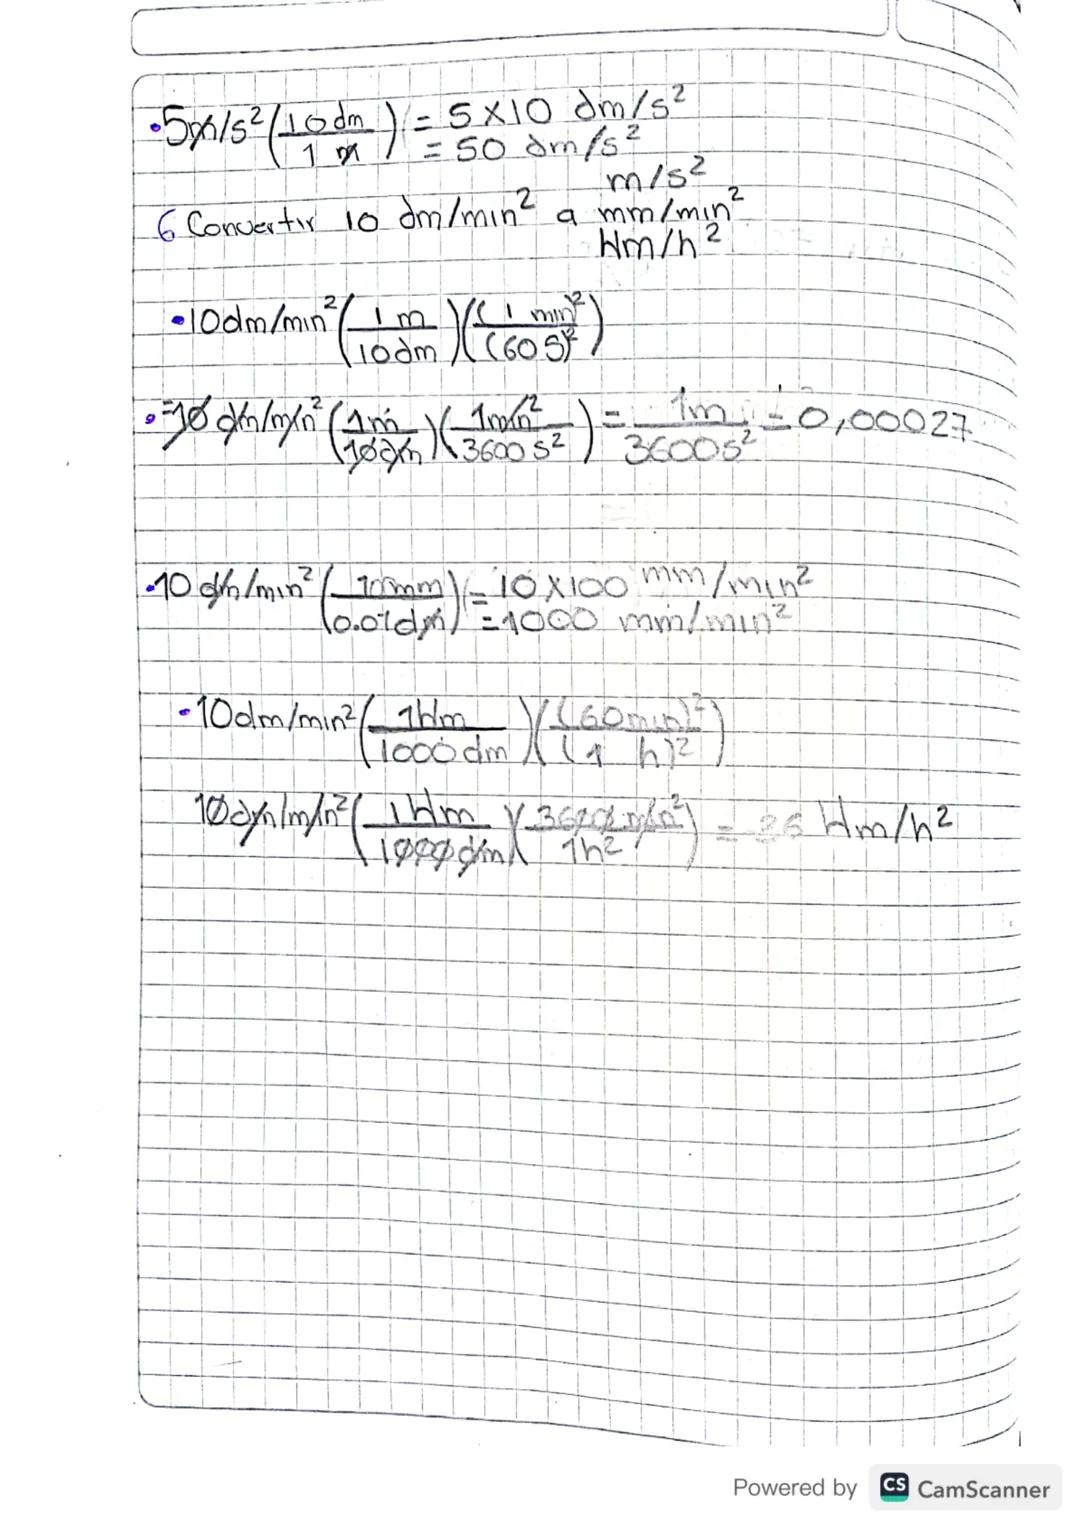 •5m/s²(10 dm / 1 m) = 5 X10 dm/s²
= 50 dm/s²
m/s²
6 Convertir 10 dm/min² a mm/min²
Hm/h²
•10dm/min²(1 m / 10dm)((1 min)² / (60 S)²)
•=10 dm/min²(1m / 10dm)(1min² / 3600 s²) = 1m / 3600s² = 0,00027
•10 dm/min²(10mm / 0.01dm) = 10 X100 mm/min²
= 1000 mm/min²
•10dm/min²(1Hm / 1000 dm)((60min)² / (1 h)²)
10dm/min²(1Hm / 1000 dm)(3600min² / 1h²) = 36 Hm/h²
Powered by CS CamScanner